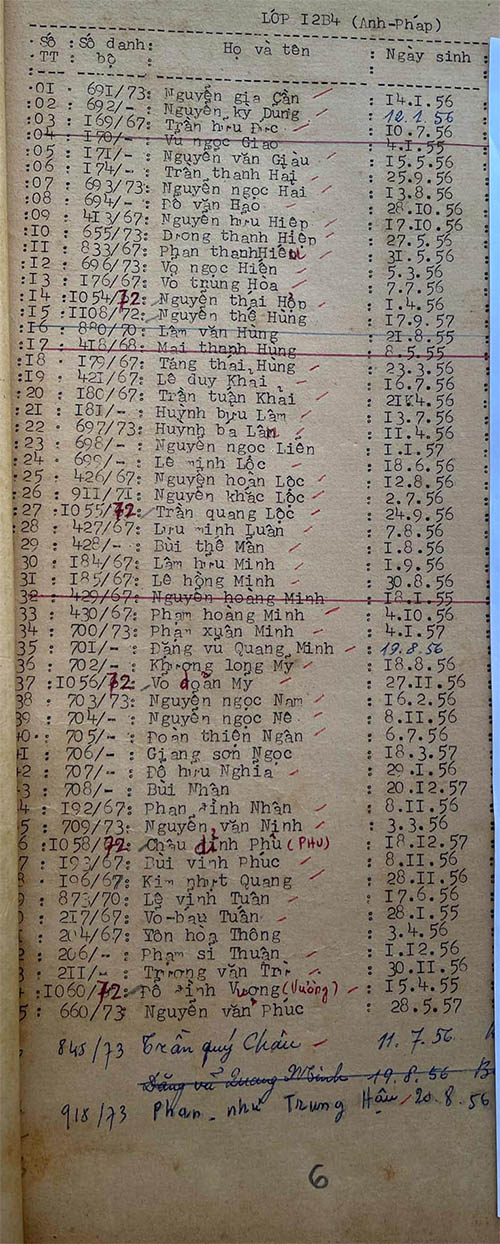 LỚP I2B4 (Anh-Pháp)
Số : Số danh: Họ và tên : Ngày sinh :
TT : bộ :
:0I : 69I/73: Nguyễn gia Cần : I4.I.56
:02 : 692/- : Nguyễn ky Dung : 12.1.56
:03 : I69/67: Trần hưu Đức : I0.7.56
:04 : I70/- : Vu ngọc Giao : 4.I.55
:05 : I7I/- : Nguyễn văn Giàu : I5.5.56
:06 : I74/- : Trần thanh Hai : 25.9.56
:07 : 693/73: Nguyễn ngọc Hai : I3.8.56
:08 : 694/- : Đỗ văn Hạo : 28.I0.56
:09 : 4I3/67: Nguyễn hưu Hiệp : I7.I0.56
:I0 : 655/73: Dương thanh Hiệp : 27.5.56
:II : 833/67: Phan thanhHiếu : 3I.5.56
:I2 : 696/73: Vo ngọc Hiển : 5.3.56
:I3 : I76/67: Vo trung Hòa : 7.7.56
:I4 :I054/72: Nguyễn thai Hợp : I.4.56
:I5 :II08/72: Nguyễn thế Hùng : I7.9.57
:I6 : 880/70: Lâm văn Hùng : 2I.8.55
:I7 : 4I8/68: Mai thanh Hùng : 8.5.55
:I8 : I79/67: Tăng thai Hùng : 23.3.56
:I9 : 42I/67: Lê duy Khai : I6.7.56
:20 : I80/67: Trần tuấn Khai : 2I.4.56
:2I : I8I/- : Huỳnh bưu Lâm : I3.7.56
:22 : 697/73: Huynh ba Lân : II.4.56
:23 : 698/- : Nguyễn ngọc Liên : I.I.57
:24 : 699/- : Lê minh Lộc : I8.6.56
:25 : 426/67: Nguyễn hoàn Lộc : I2.8.56
:26 : 9II/7I: Nguyễn khắc Lộc : 2.7.56
:27 :I055/72: Trần quang Lộc : 24.9.56
28 : 427/67: Lưu minh Luân : 7.8.56
29 : 428/- : Bùi thế Mẫn : I.8.56
30 : I84/67: Lâm hưu Minh : I.9.56
3I : I85/67: Lê hồng Minh : 30.8.56
32 : 429/67: Nguyễn hoàng Minh : I8.I.55
33 : 430/67: Phạm hoàng Minh : 4.I0.56
34 : 700/73: Phạm xuân Minh : 4.I.57
35 : 70I/- : Đặng vu Quang Minh : 19.8.56
36 : 702/- : Khương long Mỹ : I8.8.56
37 :I056/72: Vo doãn Mỹ : 27.II.56
38 : 703/73: Nguyễn ngọc Nam : I6.2.56
39 : 704/- : Nguyễn ngọc Nê : 8.II.56
0 : 705/- : Đoàn thiên Ngân : 6.7.56
I : 706/- : Giang sơn Ngọc : I8.3.57
2 : 707/- : Đỗ hưu Nghĩa : 29.I.56
3 : 708/- : Bùi Nhân : 20.I2.57
4 : I92/67: Phan đình Nhân : 8.II.56
5 : 709/73: Nguyễn văn Ninh : 3.3.56
6 :I058/72: Châu đình Phú (PHÚ) : I8.I2.57
7 : I93/67: Bùi vinh Phúc : 8.II.56
: I96/67: Kim nhựt Quang : 28.II.56
: 873/70: Lê vinh Tuân : I7.6.56
: 2I7/67: Vo-bau Tuân : 28.I.55
I : 204/67: Yôn hòa Thông : 3.4.56
: 206/- : Phạm si Thuận : I.I2.56
: 2II/- : Trương văn Trí : 30.II.56
:I060/72: Đỗ đình Vượng (Vương) : I5.4.55
5 : 660/73 Nguyễn văn Phúc : 28.5.57
845/73 Trần quý Châu 11.7.56
Đặng vũ Quang Minh 19.8.56
918/73 Phan như Trung Hậu 20.8.56
6